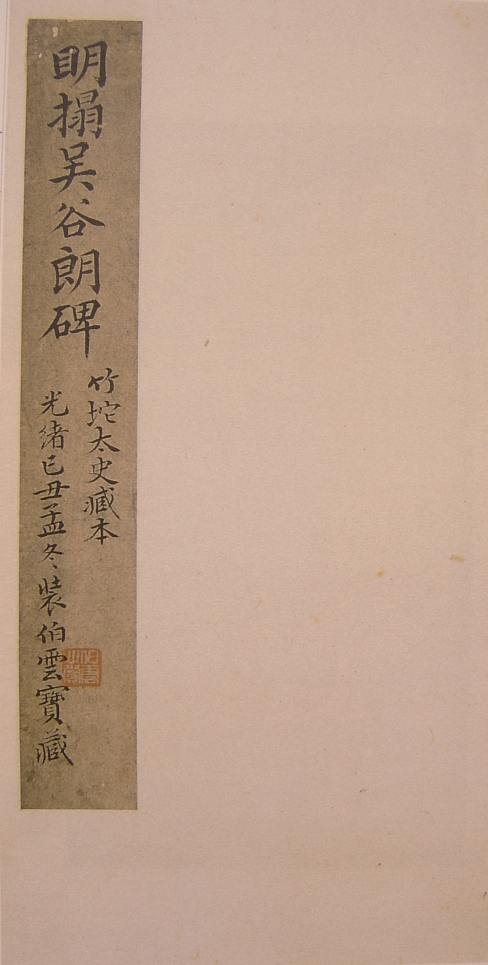 明搨吴谷朗碑
竹垞太史臧本
光緒己丑孟冬装伯雲寶藏